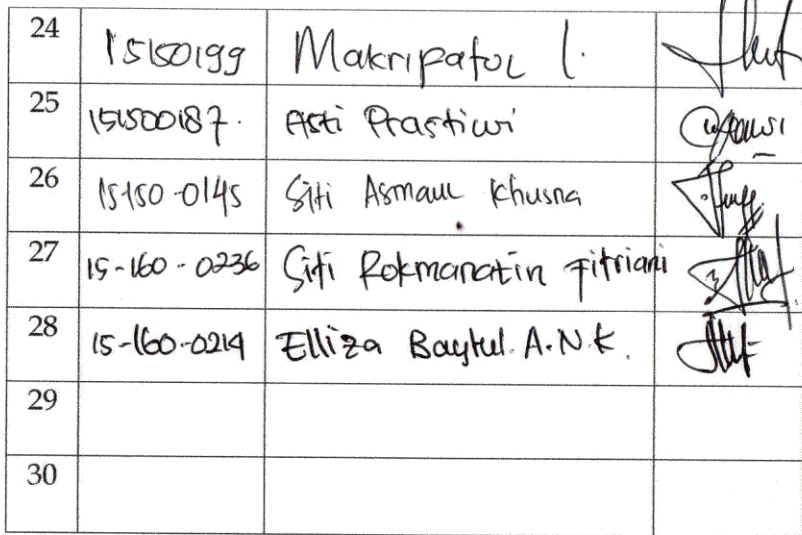 24 15150199 Makripatul l.
25 151500187. Asti Prastiwi
26 15150-0145 Siti Asmaul Khusna
27 15-160-0236 Siti Rokmanatin Fitriani
28 15-160-0214 Elliza Baytul. A.N.K.
29
30